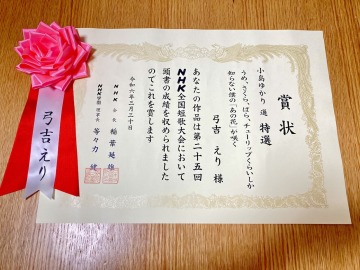 賞状
小島ゆかり 選 特選
うめ、さくら、ばら、チューリップくらいしか
知らない僕の「あの花」が咲く
弓吉 えり 様
あなたの作品は第二十五回
NHK全国短歌大会において
頭書の成績を収められました
のでこれを賞します
令和六年三月二十日
NHK 会長 稲葉延雄
NHK学園 理事長 等々力 健
弓吉えり